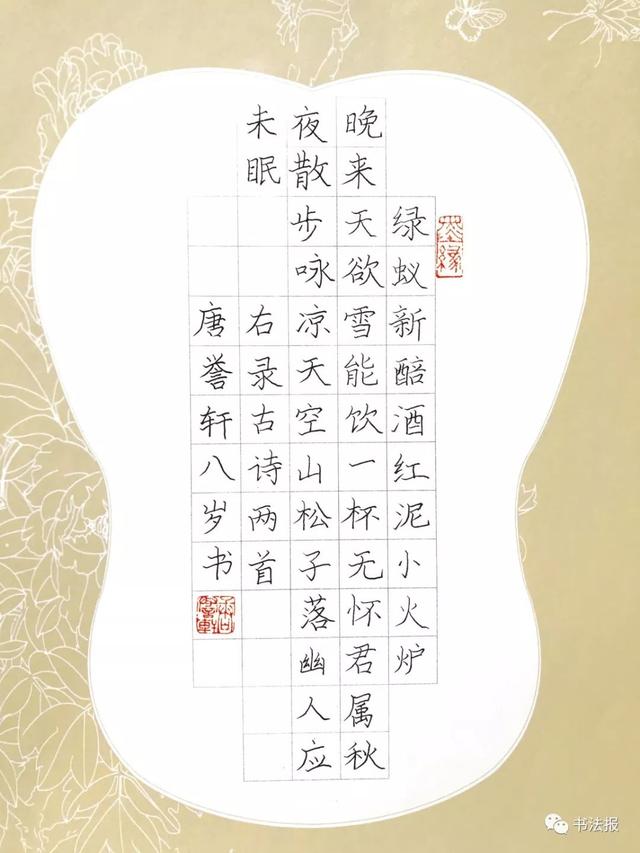 绿蚁新醅酒红泥小火炉
晚来天欲雪能饮一杯无怀君属秋
夜散步咏凉天空山松子落幽人应
未眠
右录古诗两首
唐誉轩八岁书
墨緣
书法报